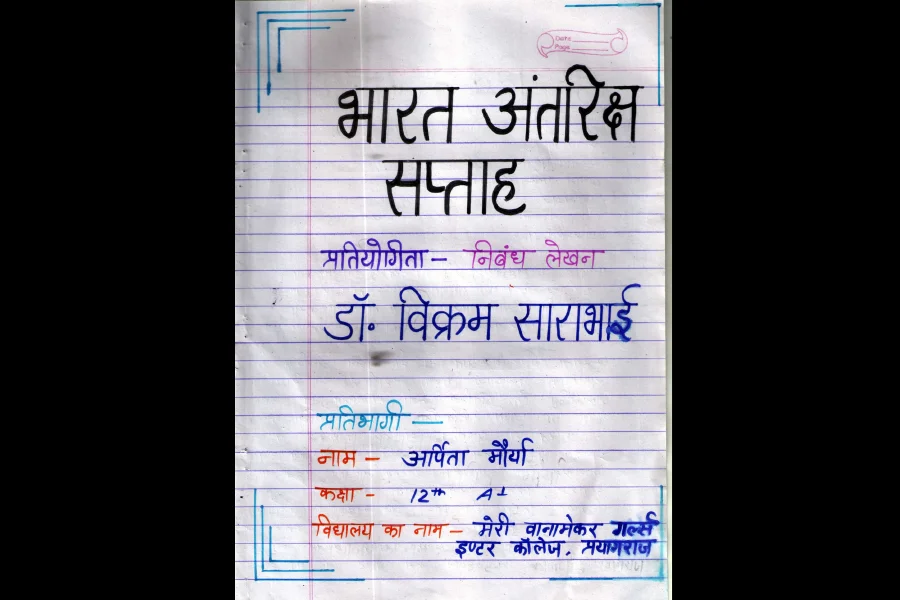 Date
Page
भारत अंतरिक्ष
सप्ताह
प्रतियोगिता – निबंध लेखन
डॉ. विक्रम साराभाई
प्रतिभागी —
नाम – अर्पिता मौर्या
कक्षा - 12th A1
विद्यालय का नाम – मेरी वानामेकर गर्ल्स
इण्टर कॉलेज. प्रयागराज